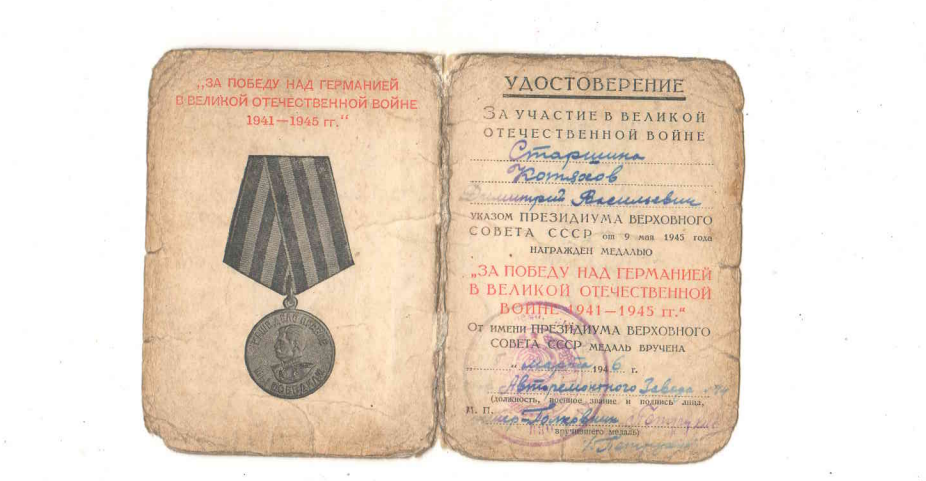 „ЗА ПОБЕДУ НАД ГЕРМАНИЕЙ
В ВЕЛИКОЙ ОТЕЧЕСТВЕННОЙ ВОЙНЕ
1941—1945 гг.“
НАШЕ ДЕЛО ПРАВОЕ
МЫ ПОБЕДИЛИ
УДОСТОВЕРЕНИЕ
ЗА УЧАСТИЕ В ВЕЛИКОЙ
ОТЕЧЕСТВЕННОЙ ВОЙНЕ
Старшина
Котяхов
Дмитрий Васильевич
УКАЗОМ ПРЕЗИДИУМА ВЕРХОВНОГО
СОВЕТА СССР от 9 мая 1945 года
НАГРАЖДЕН МЕДАЛЬЮ
„ЗА ПОБЕДУ НАД ГЕРМАНИЕЙ
В ВЕЛИКОЙ ОТЕЧЕСТВЕННОЙ
ВОЙНЕ 1941—1945 гг.“
ОТ ИМЕНИ ПРЕЗИДИУМА ВЕРХОВНОГО
СОВЕТА СССР МЕДАЛЬ ВРУЧЕНА
" марта 1946 г.
Авторемонтного Завода
(должность, военное звание и подпись лица,
М. П.
Полковник
вручившего медаль)